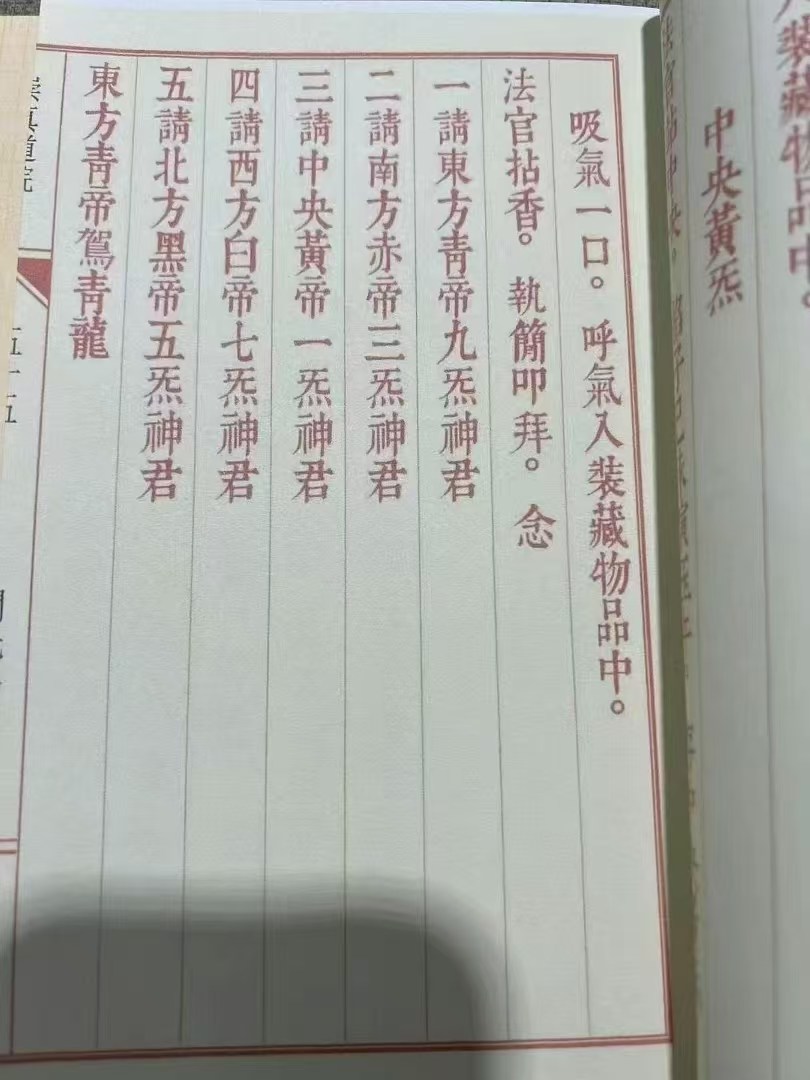 入裝藏物品中。
中央黃炁
吸氣一口。呼氣入裝藏物品中。
法官拈香。執簡叩拜。念
一請東方靑帝九炁神君
二請南方赤帝三炁神君
三請中央黃帝一炁神君
四請西方白帝七炁神君
五請北方黑帝五炁神君
東方靑帝駕靑龍
崇真道院
五十五